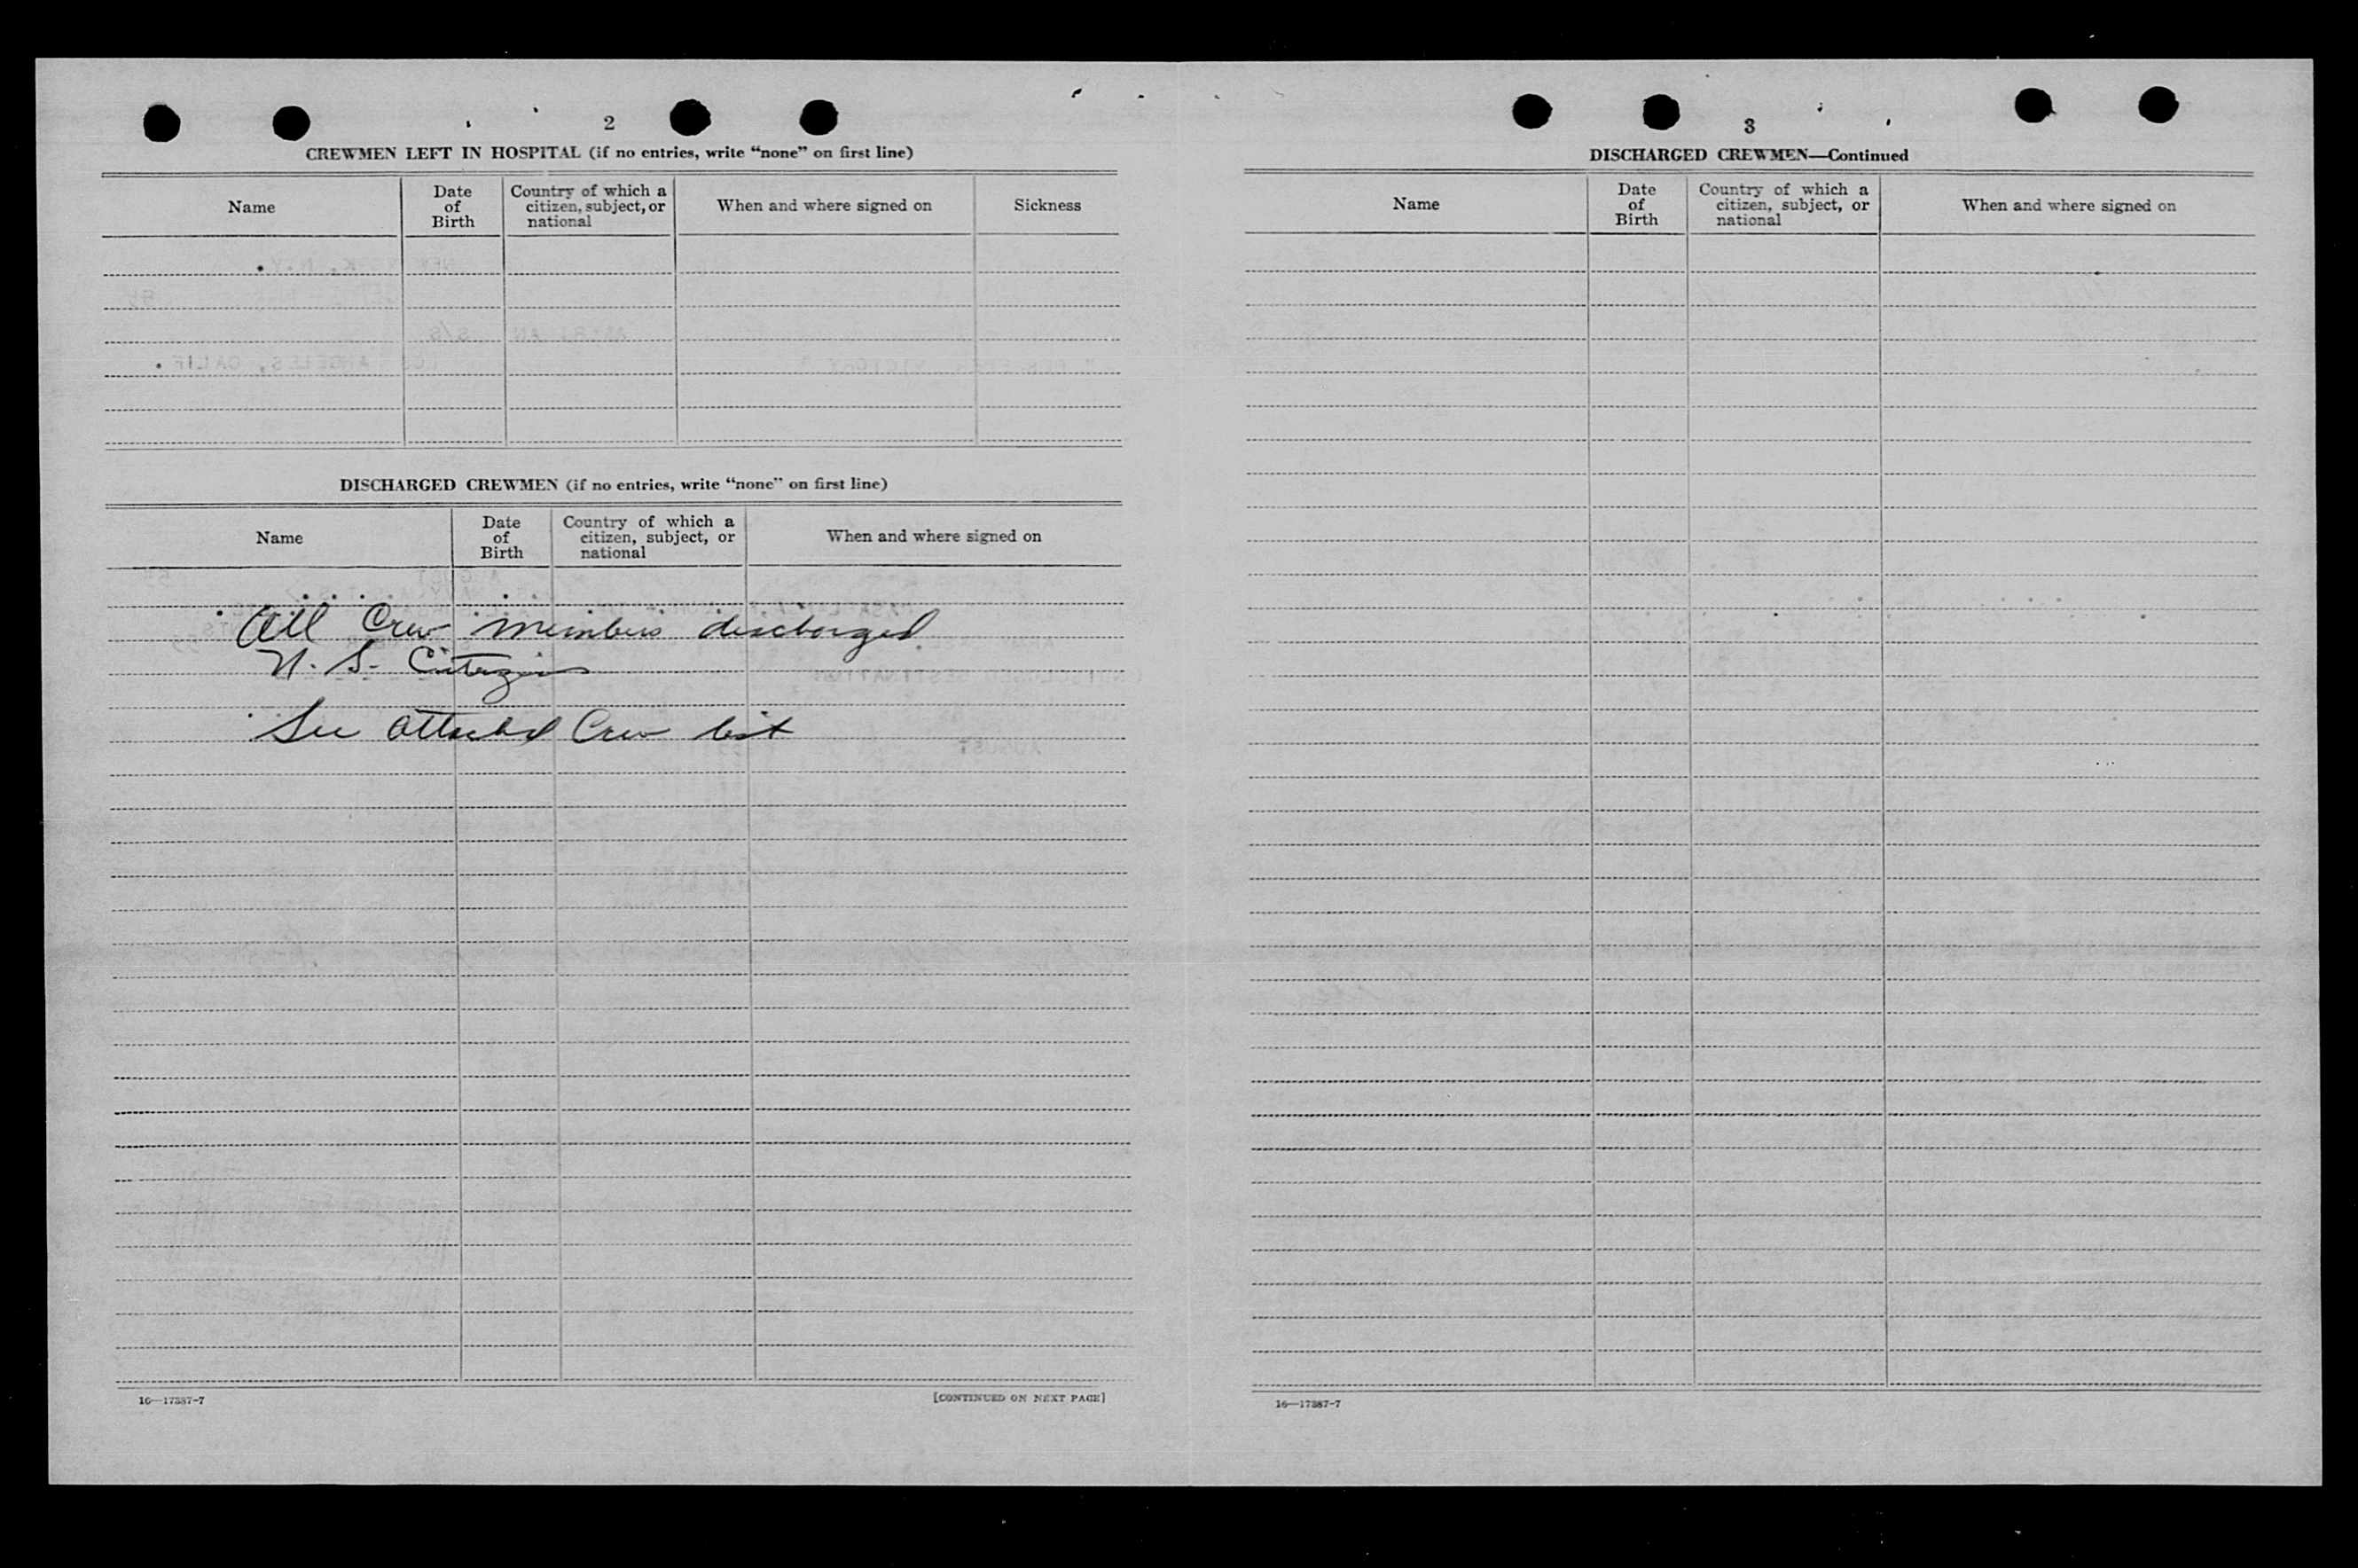 2
CREWMEN LEFT IN HOSPITAL (if no entries, write “none” on first line)
Name
Date of Birth
Country of which a citizen, subject, or national
When and where signed on
Sickness
DISCHARGED CREWMEN (if no entries, write “none” on first line)
Name
Date of Birth
Country of which a citizen, subject, or national
When and where signed on
All Crew members discharged
U. S. Citizens
See attached Crew list
16—17387-7
[CONTINUED ON NEXT PAGE]
3
DISCHARGED CREWMEN—Continued
Name
Date of Birth
Country of which a citizen, subject, or national
When and where signed on
16—17387-7